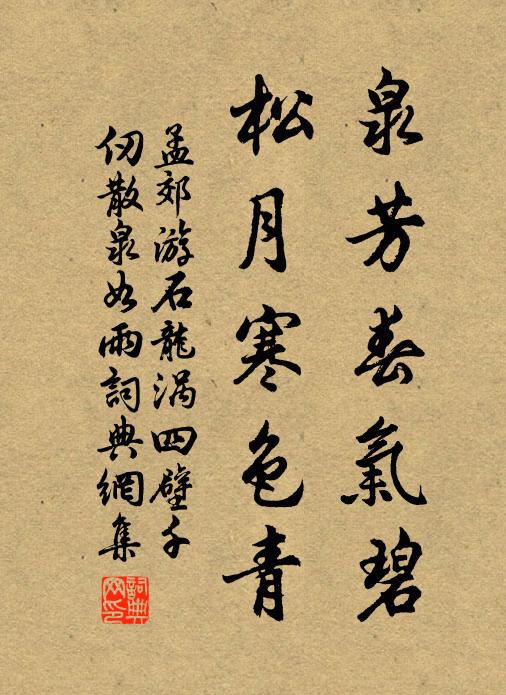 泉芳春氣碧
松月寒色青
孟郊游石龍涡四壁千
仞散泉如雨詞典網集
詞典网印